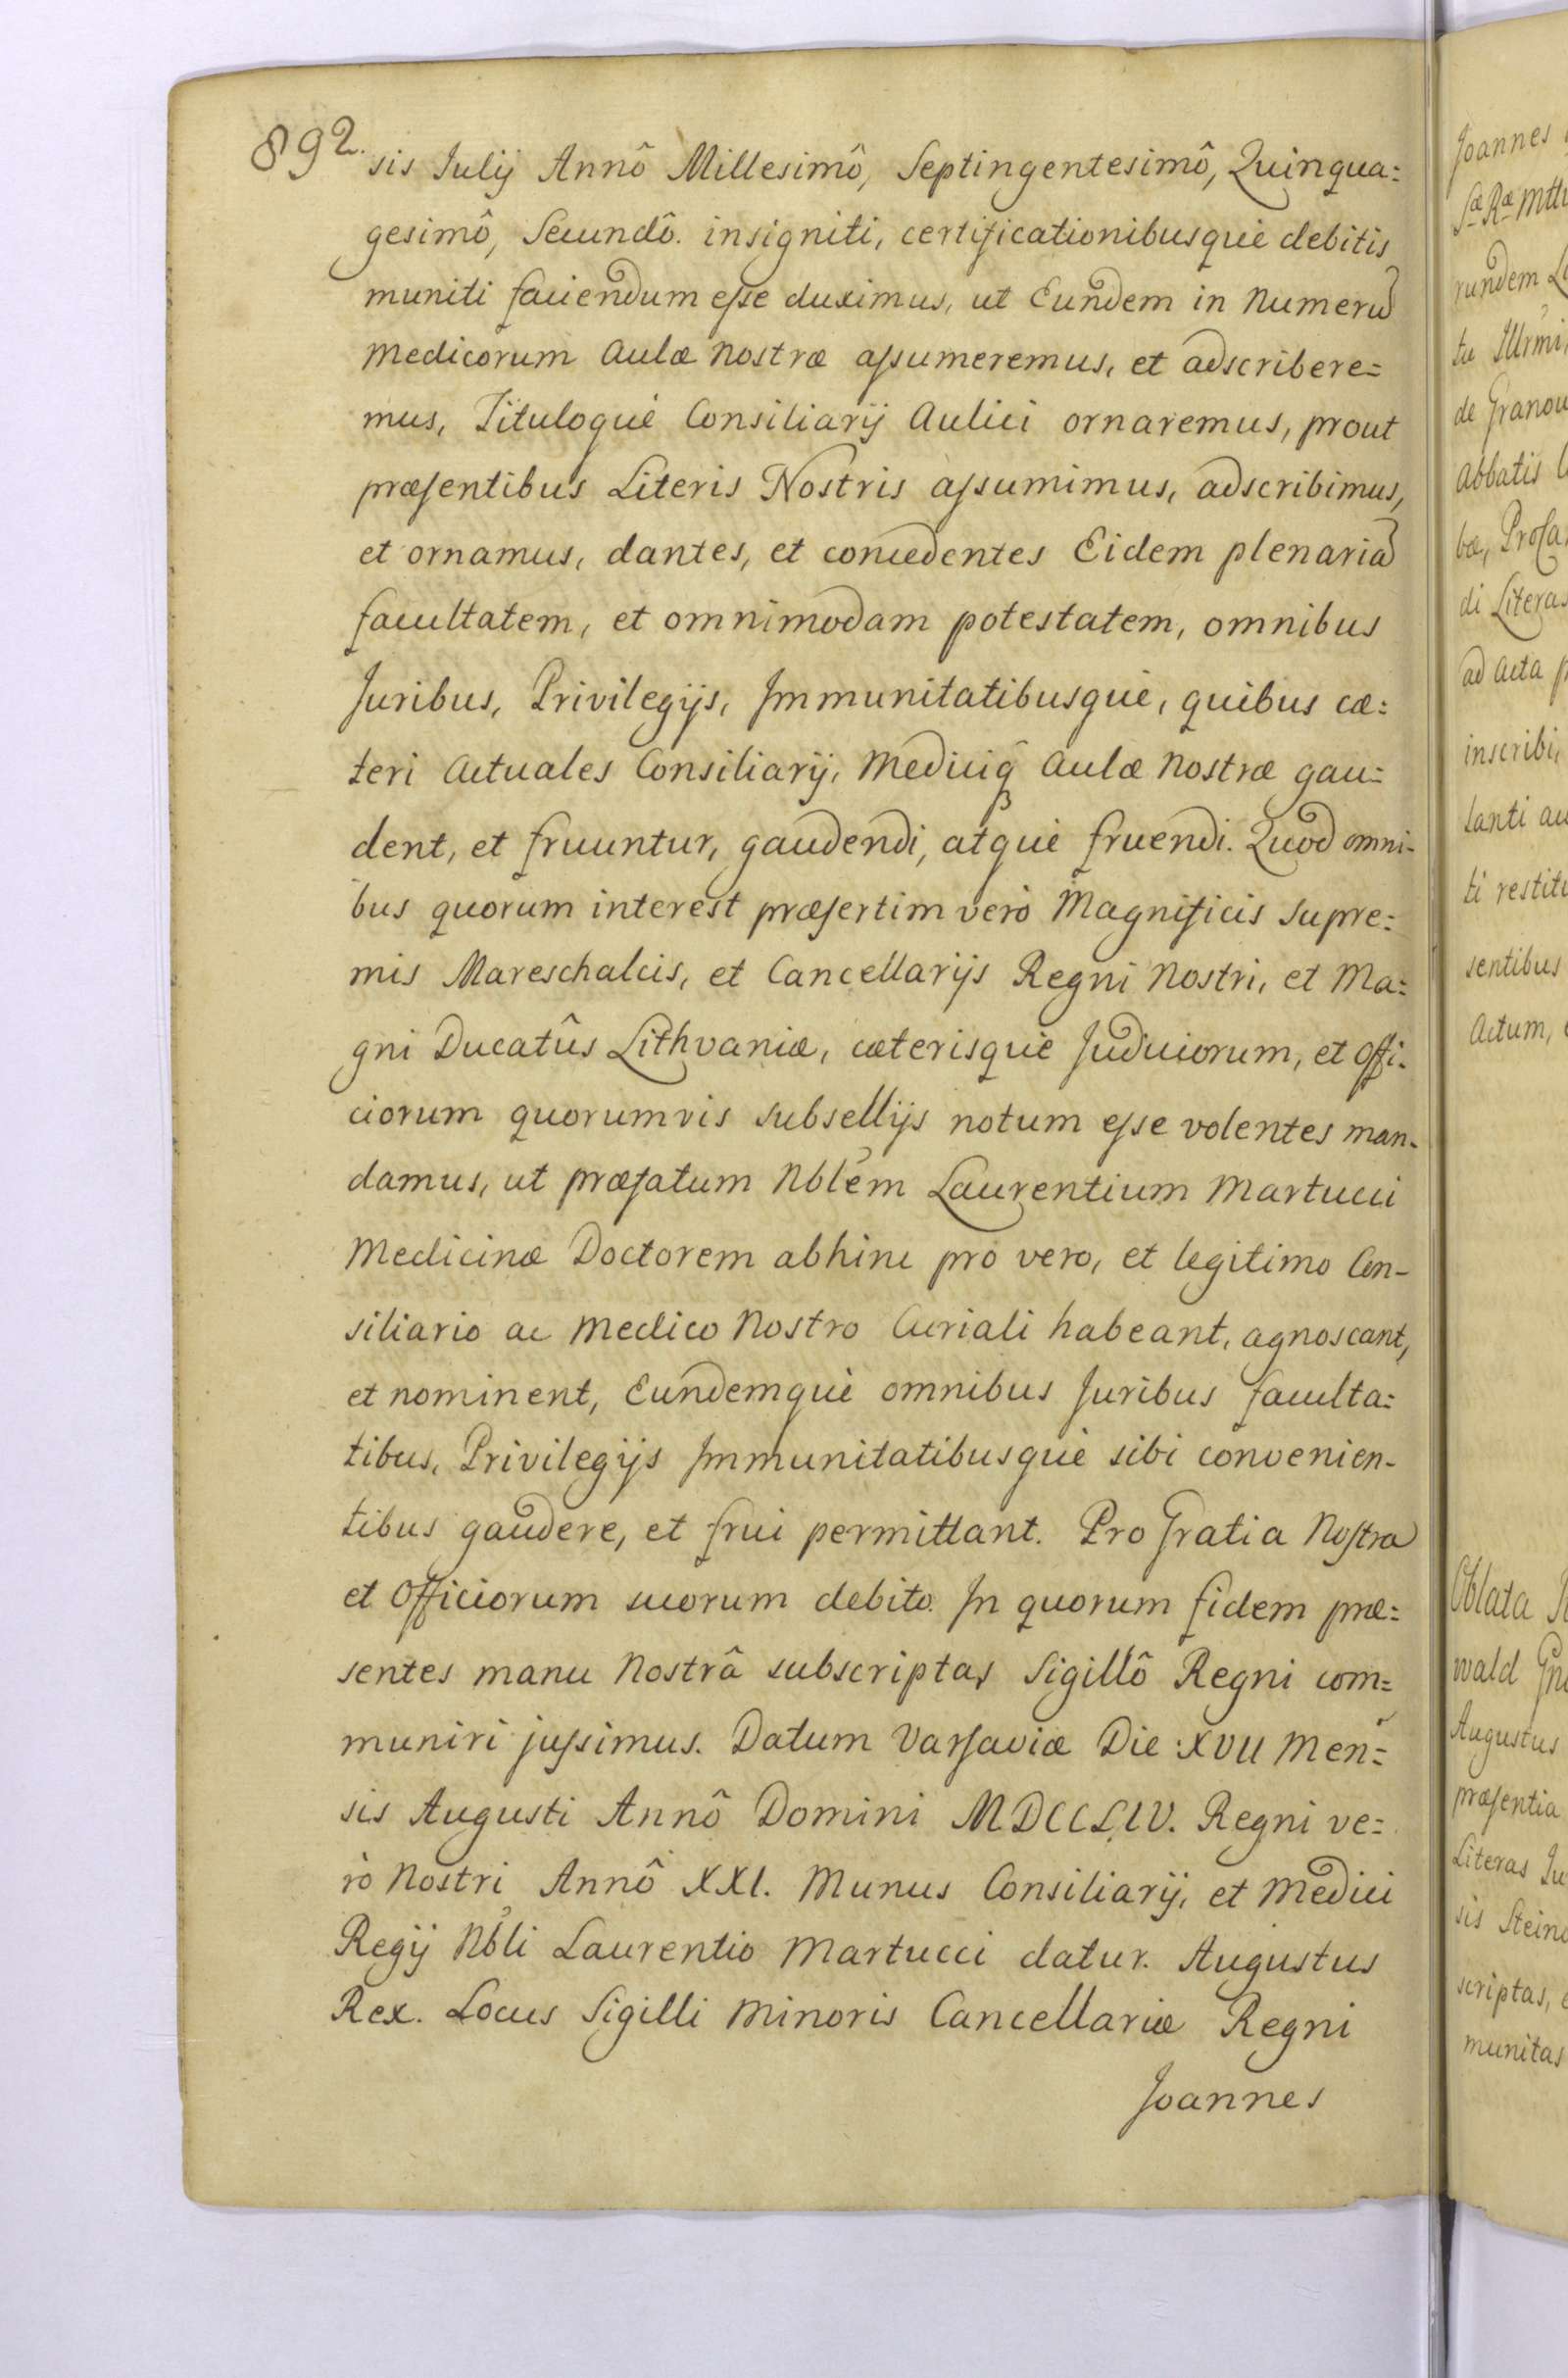 892.
sis Julij Annô Millesimô, Septingentesimô, Quinqua:
gesimô, Secundô. insigniti, certificationibusque debitis
muniti faciendum esse duximus, ut Eundem in Numerũ
Medicorum Aulæ Nostræ assumeremus, et adscribere=
mus, Tituloque Consiliarij Aulici ornaremus, prout
præsentibus Literis Nostris assumimus, adscribimus,
et ornamus, dantes, et concedentes Eidem plenariã
facultatem, et omnimodam potestatem, omnibus
Juribus, Privilegijs, Immunitatibusque, quibus cæ:
teri Actuales Consiliarij, Mediciq̃ Aulæ Nostræ gau=
dent, et fruuntur, gaudendi, atque fruendi. Quod omni-
bus quorum interest præsertim verò Magnificis Supre:
mis Mareschalcis, et Cancellarijs Regni Nostri, et Ma:
gni Ducatûs Lithvaniæ, cæterisque Judiciorum, et Offi-
ciorum quorumvis subsellijs notum esse volentes man-
damus, ut præfatum Nblem Laurentium Martucci
Medicinæ Doctorem abhinc pro vero, et legitimo Con-
siliario ac Medico Nostro Actiali habeant, agnoscant,
et nominent, Eundemque omnibus Juribus faculta:
tibus, Privilegijs Immunitatibusque sibi convenien-
tibus gaudere, et frui permittant. Pro Gratia Nostra
et Officiorum suorum debito. In quorum fidem præ:
sentes manu Nostrâ subscriptas Sigillô Regni com=
muniri jussimus. Datum Varsaviæ Die XVII Men=
sis Augusti Annô Domini MDCCLIV. Regni ve=
rò Nostri Annô XXI. Munus Consiliarij, et Medici
Regij Nbli Laurentio Martucci datur. Augustus
Rex. Locus Sigilli Minoris Cancellariæ Regni
Joannes
Joannes
Sæ Ræ Mtti
rundem
tu Illrmi
de Granow
Abbatis
bæ,
di Literas
ad Acta
inscribi,
lanti au
ti restitu
sentibus
Actum,
Oblata
wald
Augustus
præsentia
Literas
sis Stein
scriptas,
munitas